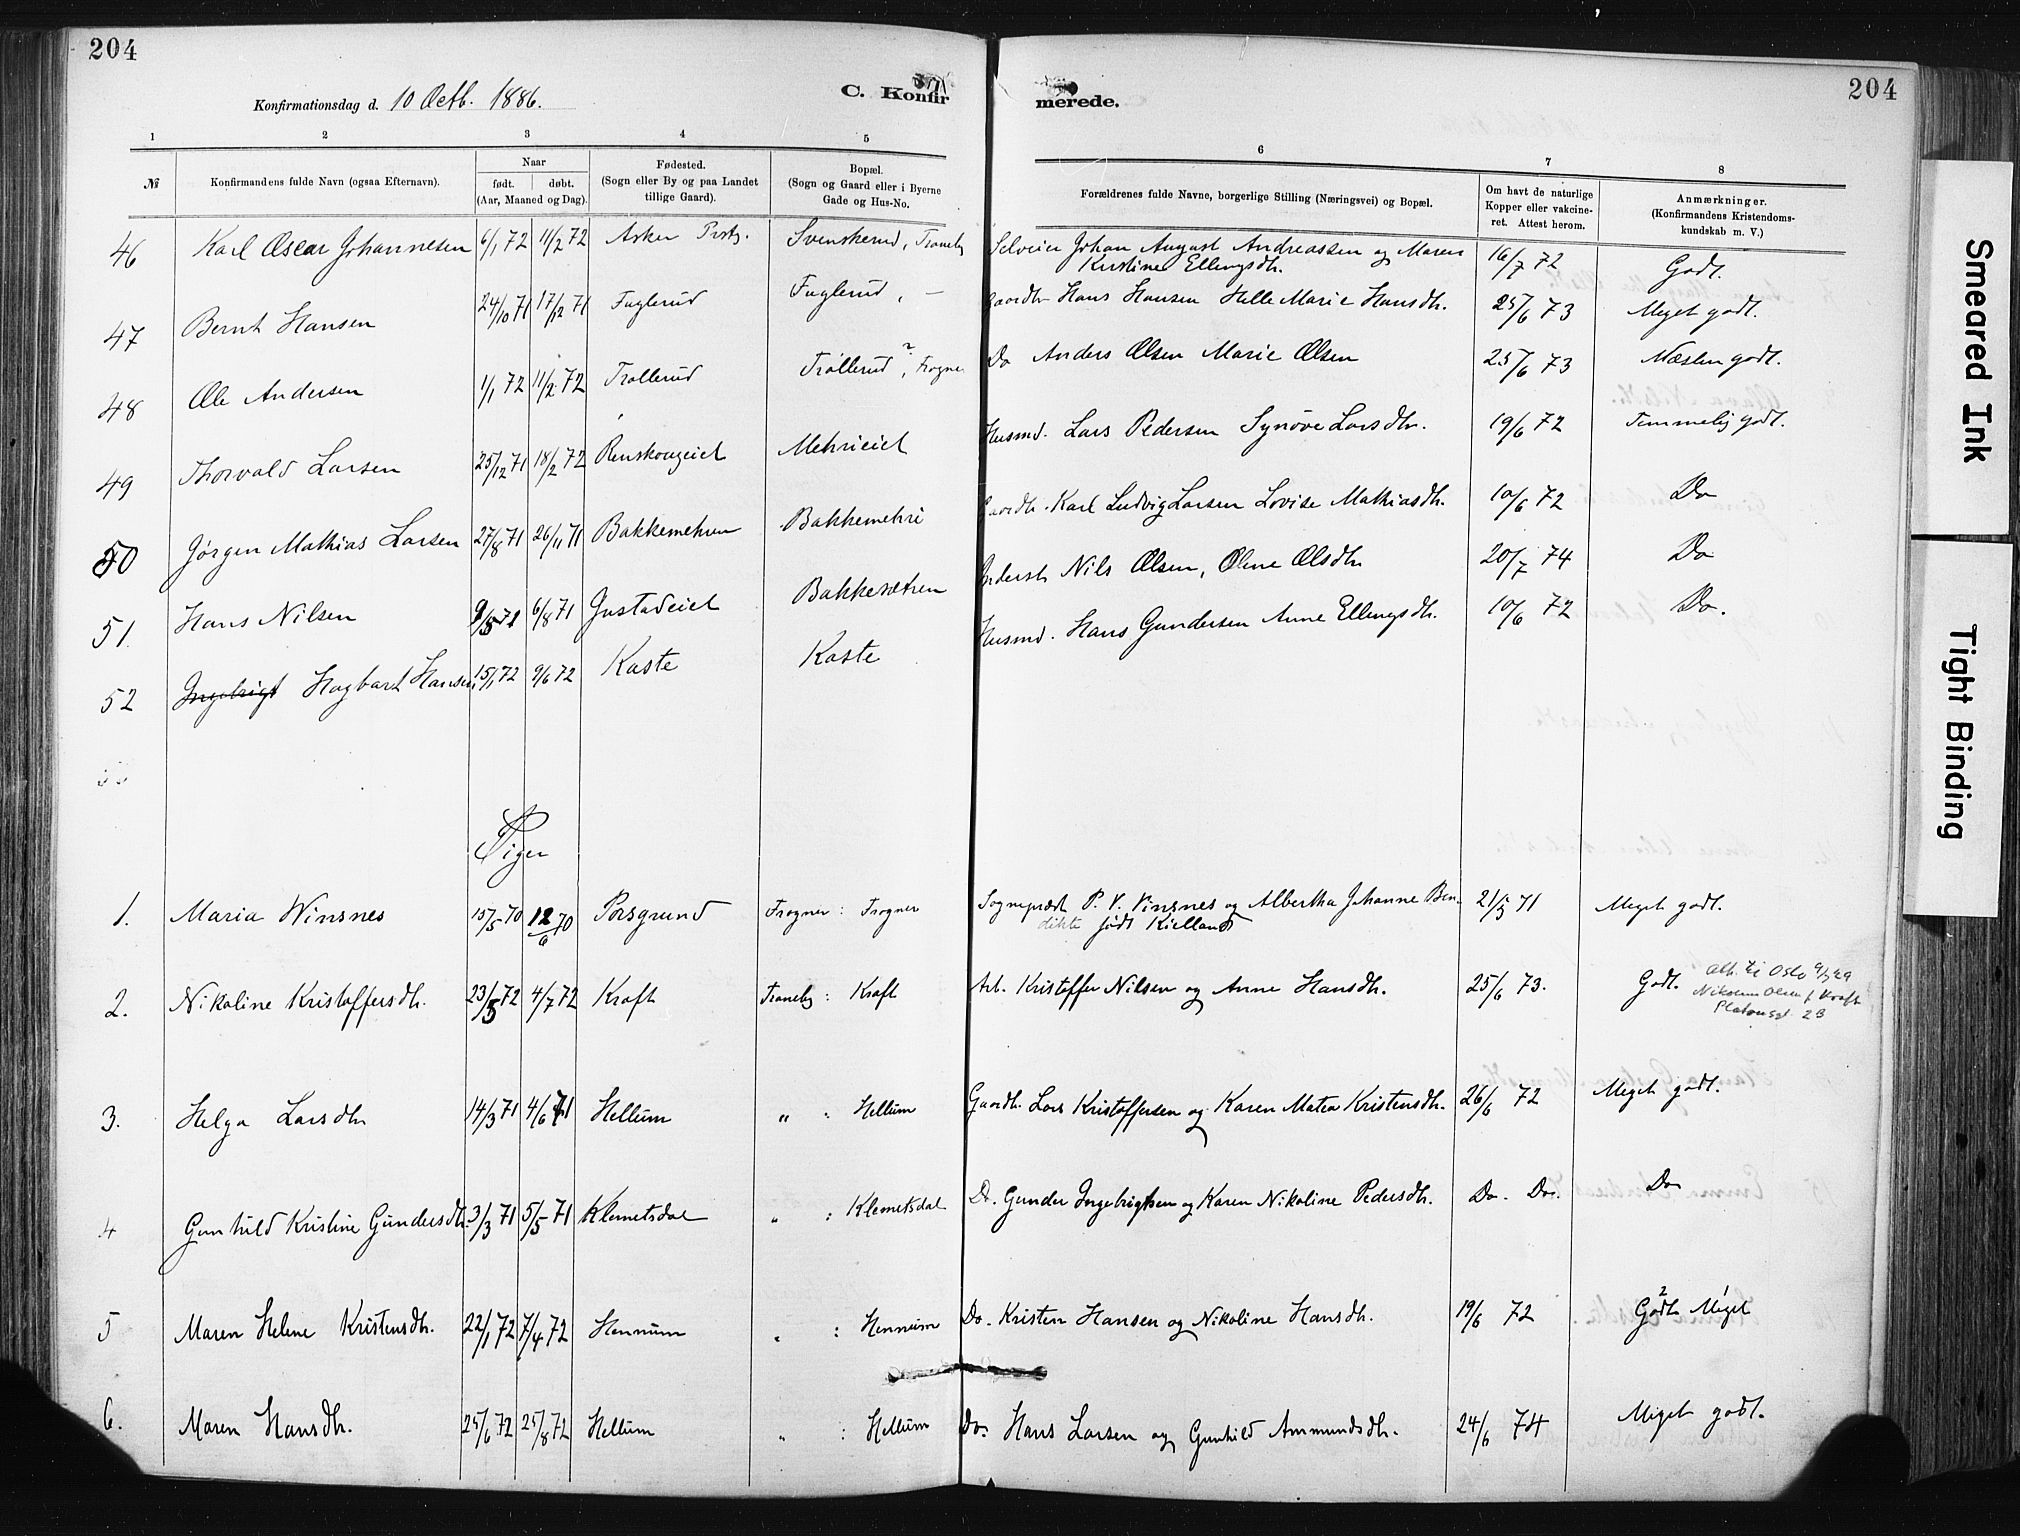 204
Konfirmationsdag d. 10 Octb. 1886.
C. Konfir
merede.
204
1 2 3 4 5 6 7 8
№ Konfirmandens fulde Navn (ogsaa Efternavn). Naar født. døbt. (Aar, Maaned og Dag). Fødested. (Sogn eller By og paa Landet tillige Gaard). Bopæl. (Sogn og Gaard eller i Byerne Gade og Hus-No. Forældrenes fulde Navne, borgerlige Stilling (Næringsvei) og Bopæl. Om havt de naturlige Kopper eller vakcineret. Attest herom. Anmærkninger. (Konfirmandens Kristendomskundskab m. V.)
46 Karl Oscar Johannesen 6/1 72 11/2 72 Asker Prstg. Svenskerud, Traneby Selveier Johan August Andreassen og Maren 16/7 72 Godt.
Kristine Ellingsdtr.
47 Bernt Hansen 24/10 71 17/12 71 Fuglerud Fuglerud, — Gaardbr Hans Hansen Helle Marie Hansdtr. 25/6 73 Meget godt.
48 Ole Andersen 1/1 72 11/2 72 Trollerud Trollerud, Frogner Do Anders Olsen Marie Olsen 25/6 73 Næsten godt.
49 Thorvald Larsen 25/12 71 18/2 72 Renskougeiet Mehrieiet Husmd. Lars Pedersen Synøve Larsdtr. 19/6 72 Temmelig godt.
50 Jørgen Mathias Larsen 27/8 71 26/11 71 Bakkemehren Bakkemehri Gaardbr. Karl Ludvig Larsen Lovise Mathiasdtr. 10/6 72 Do
51. Hans Nilsen 9/5 71 6/8 71 Gustadeiet Bakkesætren Inderst Nils Olsen, Oline Olsdtr 20/7 74 Do
52 Ingebrigt Hagbart Hansen 15/1 72 9/6 72 Kaste Kaste Husmd. Hans Gundersen Anne Ellingsdtr. 10/6 72 Do.
Piger
1. Maria Winsnes 15/5 70 12/6 70 Porsgrund Frogner : Frogner Sognepræst P. V. Vinsnes og Albertha Johanne Ben- 21/3 71 Meget godt.
dikte født Kielland
2. Nikoline Kristoffersdtr. 23/5 72 4/7 72 Kraft Traneby : Kraft Arb. Kristoffer Nilsen og Anne Hansdtr. 25/6 73. Godt. Att. til Oslo
Olsen f. Kraft
23
3. Helga Larsdtr 14/3 71 4/6 71 Hellum „ : Hellum Gaardbr. Lars Kristoffersen og Karen Matea Kristensdtr. 26/6 72 Meget godt.
4 Gunhild Kristine Gundersdtr. 3/3 71 5/5 71 Klemetsdal „ : Klemetsdal Do. Gunder Ingebrigtsen og Karen Nikoline Pedersdtr. Do. Do. Do
5 Maren Helene Kristensdtr. 22/1 72 7/4 72 Hennum „ : Hennum Do. Kristen Hansen og Nikoline Hansdtr. 19/6 72 Godt Meget
6. Maren Hansdtr. 25/6 72 25/8 72 Hellum „ : Hellum Do. Hans Larsen og Gunhild Ammundsdtr. 24/6 74 Meget godt.
Smeared Ink
Tight Binding